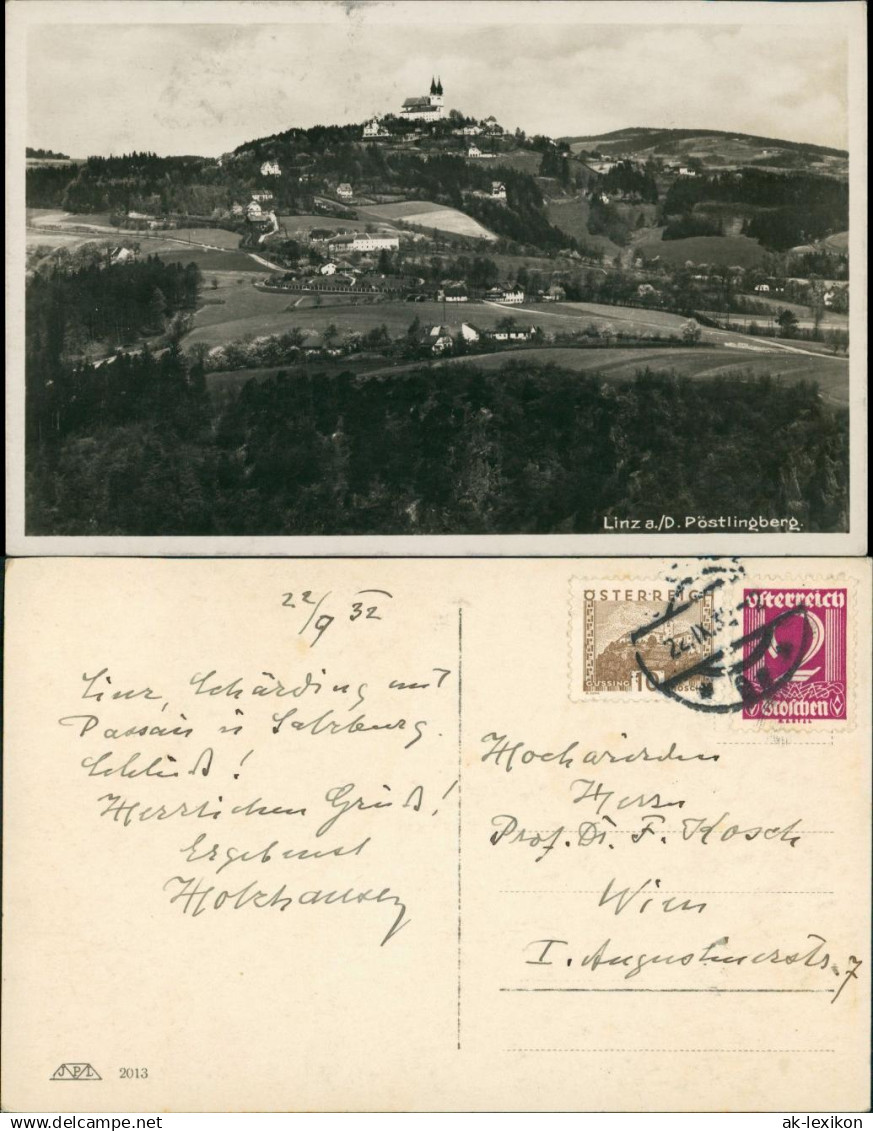 Linz a./D. Pöstlingberg.
22/9 32
Linz, Schärding mit
Passau u Salzburg.
Schluß!
Herzlichen Gruß!
Ergebenst
Holzhausen
ÖSTERREICH
GÜSSING 10 GROSCHEN
Österreich
2
Groschen
22.IX.32
Hochwürden
Herrn
Prof. Dr. F. Kosch
Wien
I. Augustinerstr. 7
JPL 2013
ak-lexikon